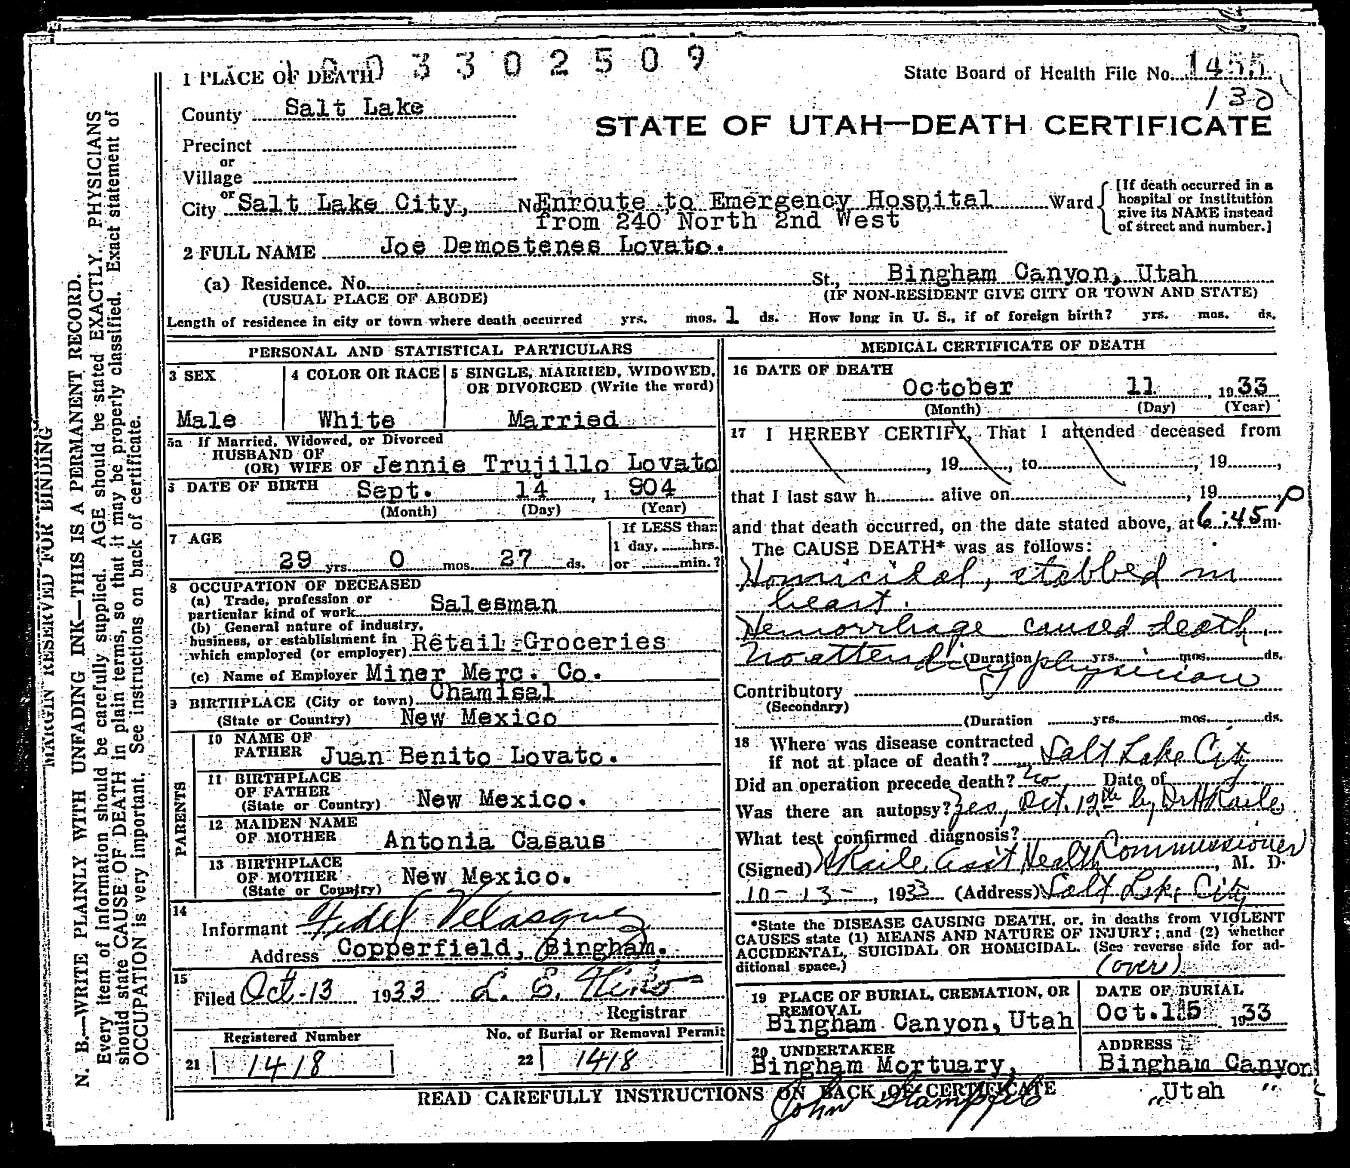 1 PLACE OF DEATH 0 3 3 0 2 5 0 9
State Board of Health File No. 1455
130
County Salt Lake
STATE OF UTAH—DEATH CERTIFICATE
Precinct
or
Village
or
City Salt Lake City, No. Enroute to Emergency Hospital Ward
from 240 North 2nd West
[If death occurred in a
hospital or institution
give its NAME instead
of street and number.]
2 FULL NAME Joe Demostenes Lovato.
(a) Residence. No. St., Bingham Canyon, Utah
(USUAL PLACE OF ABODE) (IF NON-RESIDENT GIVE CITY OR TOWN AND STATE)
Length of residence in city or town where death occurred yrs. mos. 1 ds. How long in U. S., if of foreign birth? yrs. mos. ds.
PERSONAL AND STATISTICAL PARTICULARS
3 SEX
Male
4 COLOR OR RACE
White
5 SINGLE, MARRIED, WIDOWED,
OR DIVORCED (Write the word)
Married
5a If Married, Widowed, or Divorced
HUSBAND OF
(OR) WIFE OF Jennie Trujillo Lovato
DATE OF BIRTH Sept. 14 , 1 904
(Month) (Day) (Year)
7 AGE
29 yrs. 0 mos. 27 ds.
If LESS than
1 day, hrs.
or min.?
8 OCCUPATION OF DECEASED
(a) Trade, profession or
particular kind of work Salesman
(b) General nature of industry,
business, or establishment in
which employed (or employer) Retail Groceries
(c) Name of Employer Miner Merc. Co.
9 BIRTHPLACE (City or town) Chamisal
(State or Country) New Mexico
PARENTS
10 NAME OF
FATHER Juan Benito Lovato.
11 BIRTHPLACE
OF FATHER
(State or Country) New Mexico.
12 MAIDEN NAME
OF MOTHER Antonia Casaus
13 BIRTHPLACE
OF MOTHER
(State or Country) New Mexico.
14
Informant Fidel Velasquez
Address Copperfield, Bingham.
15
Filed Oct-13 1933
Registrar
Registered Number
21 1418
No. of Burial or Removal Permit
22 1418
MEDICAL CERTIFICATE OF DEATH
16 DATE OF DEATH
October 11 , 1933
(Month) (Day) (Year)
17 I HEREBY CERTIFY, That I attended deceased from
, 19 , to , 19 ,
that I last saw h alive on , 19 ,
and that death occurred, on the date stated above, at 6:45 p m.
The CAUSE DEATH* was as follows:
Homicidal, stabbed in
heart.
Hemorrhage caused death.
No attending physician
(Duration yrs. mos. ds.
Contributory
(Secondary)
(Duration yrs. mos. ds.
18 Where was disease contracted
if not at place of death? Salt Lake City
Did an operation precede death? No Date of
Was there an autopsy? Yes, Oct. 12th by Dr H Raile
What test confirmed diagnosis?
(Signed) H Raile Ass't Health Commissioner , M. D.
10-13-, 1933 (Address) Salt Lake City
*State the DISEASE CAUSING DEATH, or, in deaths from VIOLENT
CAUSES state (1) MEANS AND NATURE OF INJURY; and (2) whether
ACCIDENTAL, SUICIDAL OR HOMICIDAL. (See reverse side for ad-
ditional space.) (over)
19 PLACE OF BURIAL, CREMATION, OR
REMOVAL
Bingham Canyon, Utah
DATE OF BURIAL
Oct. 15 , 1933
20 UNDERTAKER
Bingham Mortuary,
ADDRESS
Bingham Canyon
" Utah "
READ CAREFULLY INSTRUCTIONS ON BACK OF CERTIFICATE
John
MARGIN RESERVED FOR BINDING
N. B.—WRITE PLAINLY WITH UNFADING INK—THIS IS A PERMANENT RECORD.
Every item of information should be carefully supplied. AGE should be stated EXACTLY. PHYSICIANS
should state CAUSE OF DEATH in plain terms, so that it may be properly classified. Exact statement of
OCCUPATION is very important. See instructions on back of certificate.